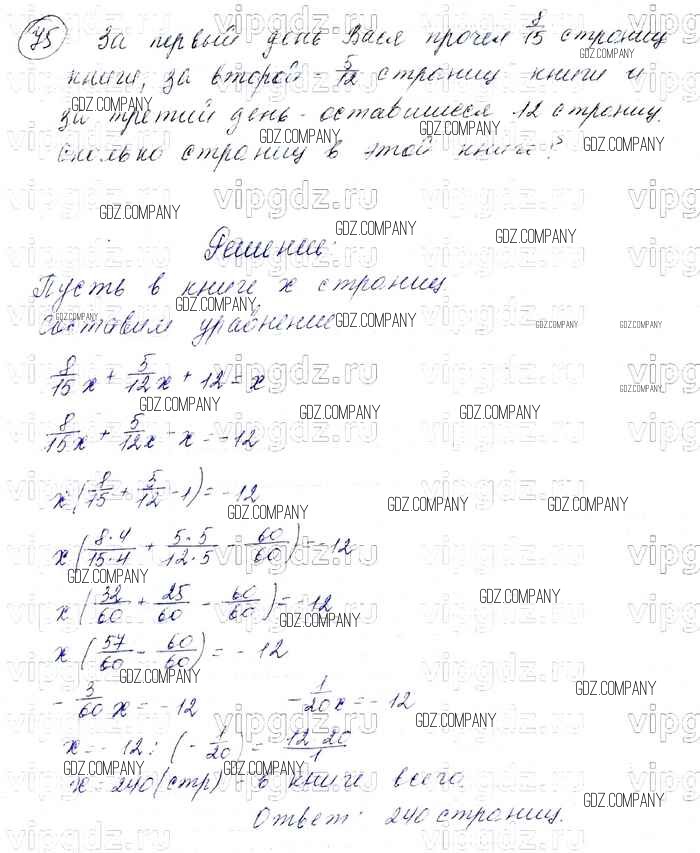 75 За первый день Вася прочел 8/15 страниц
книги, за второй - 5/12 страниц книги и
за третий день - оставшиеся 12 страниц.
Сколько страниц в этой книге?
Решение:
Пусть в книге x страниц
Составим уравнение
8/15 x + 5/12 x + 12 = x
8/15 x + 5/12 x - x = -12
x (8/15 + 5/12 - 1) = -12
x (8·4/15·4 + 5·5/12·5 - 60/60) = -12
x (32/60 + 25/60 - 60/60) = -12
x (57/60 - 60/60) = -12
- 3/60 x = -12 - 1/20 x = -12
x = -12 : (- 1/20) = 12·20/1
x = 240 (стр) - в книге всего.
Ответ: 240 страниц.
vipgdz.ru
GDZ.COMPANY